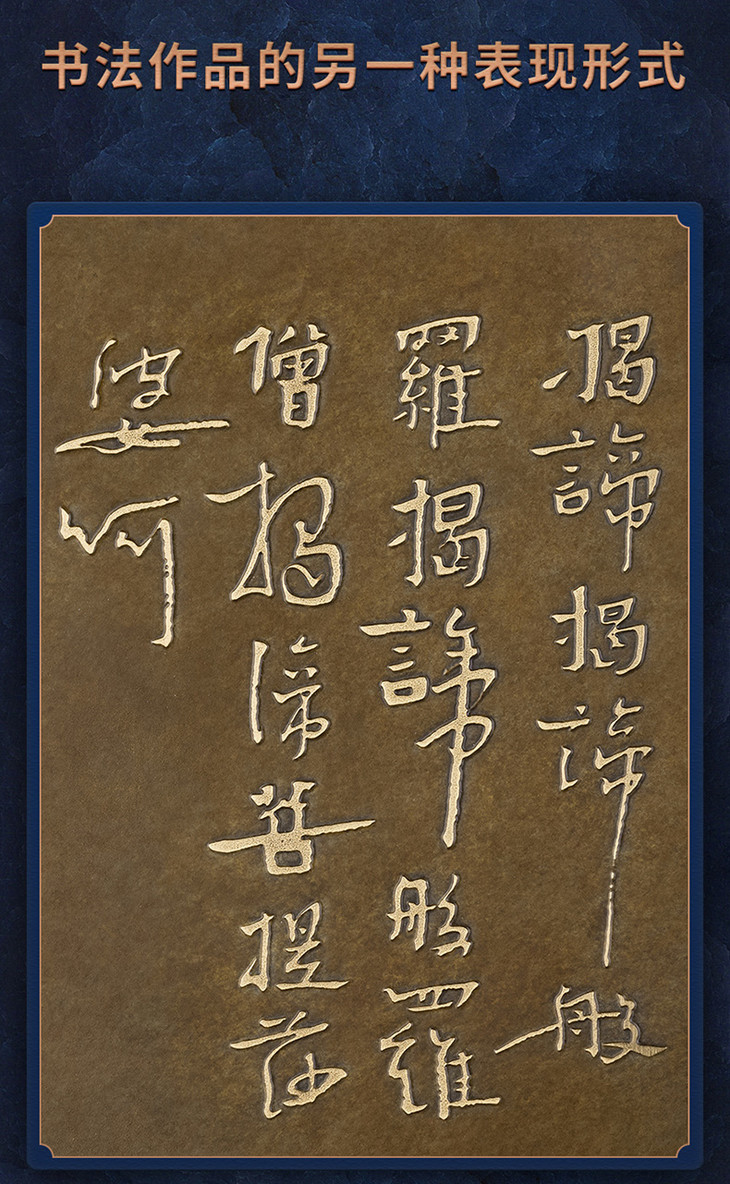 书法作品的另一种表现形式
揭諦揭諦般
羅揭諦般羅
僧揭諦菩提莎
婆訶